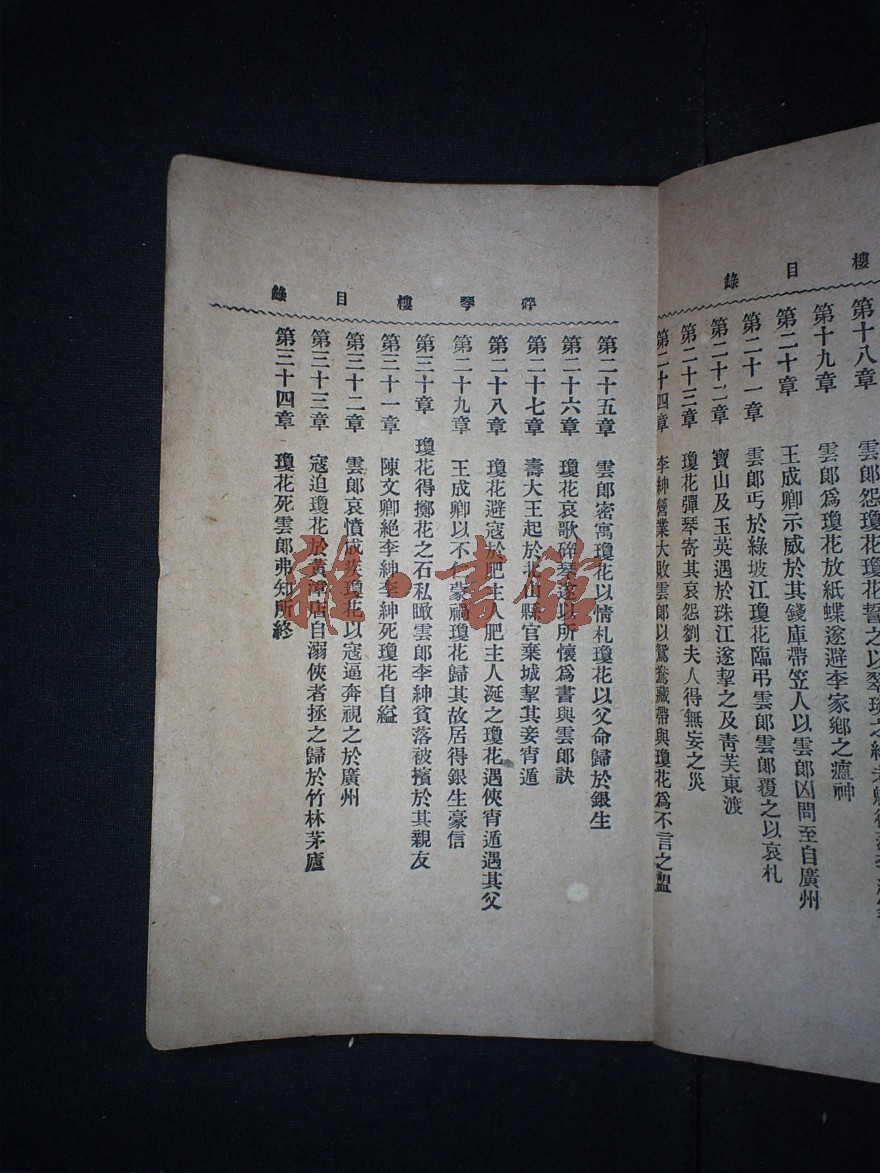 樓目錄
第十八章 雲郎怨瓊花瓊花誓之以
第十九章 雲郎為瓊花放紙蝶遂避李家鄉之瘟神
第二十章 王成卿示威於其錢庫帶笠人以雲郎凶問至自廣州
第二十一章 雲郎丐於綠坡江瓊花臨弔雲郎雲郎覆之以哀札
第二十二章 寶山及玉英遇於珠江遂挈之及青芙東渡
第二十三章 瓊花彈琴寄其哀怨劉夫人得無妄之災
第二十四章 李紳營業大敗雲郎以鴛鴦藏帶與瓊花為不言之盟
碎琴樓目錄
第二十五章 雲郎密寓瓊花以情札瓊花以父命歸於銀生
第二十六章 瓊花哀歌碎琴遂以所懷為書與雲郎訣
第二十七章 壽大王起於北山縣官棄城挈其妾宵遁
第二十八章 瓊花避寇於肥主人肥主人涎之瓊花遇俠宵遁遇其父
第二十九章 王成卿以不仁蒙禍瓊花歸其故居得銀生豪信
第三十章 瓊花得擲花之石私瞰雲郎李紳貧落被擯於其親友
第三十一章 陳文卿絕李紳李紳死瓊花自縊
第三十二章 雲郎哀憤成疾瓊花以寇逼奔視之於廣州
第三十三章 寇迫瓊花於黃漳店自溺俠者拯之歸於竹林茅廬
第三十四章 瓊花死雲郎弗知所終
雜·書館